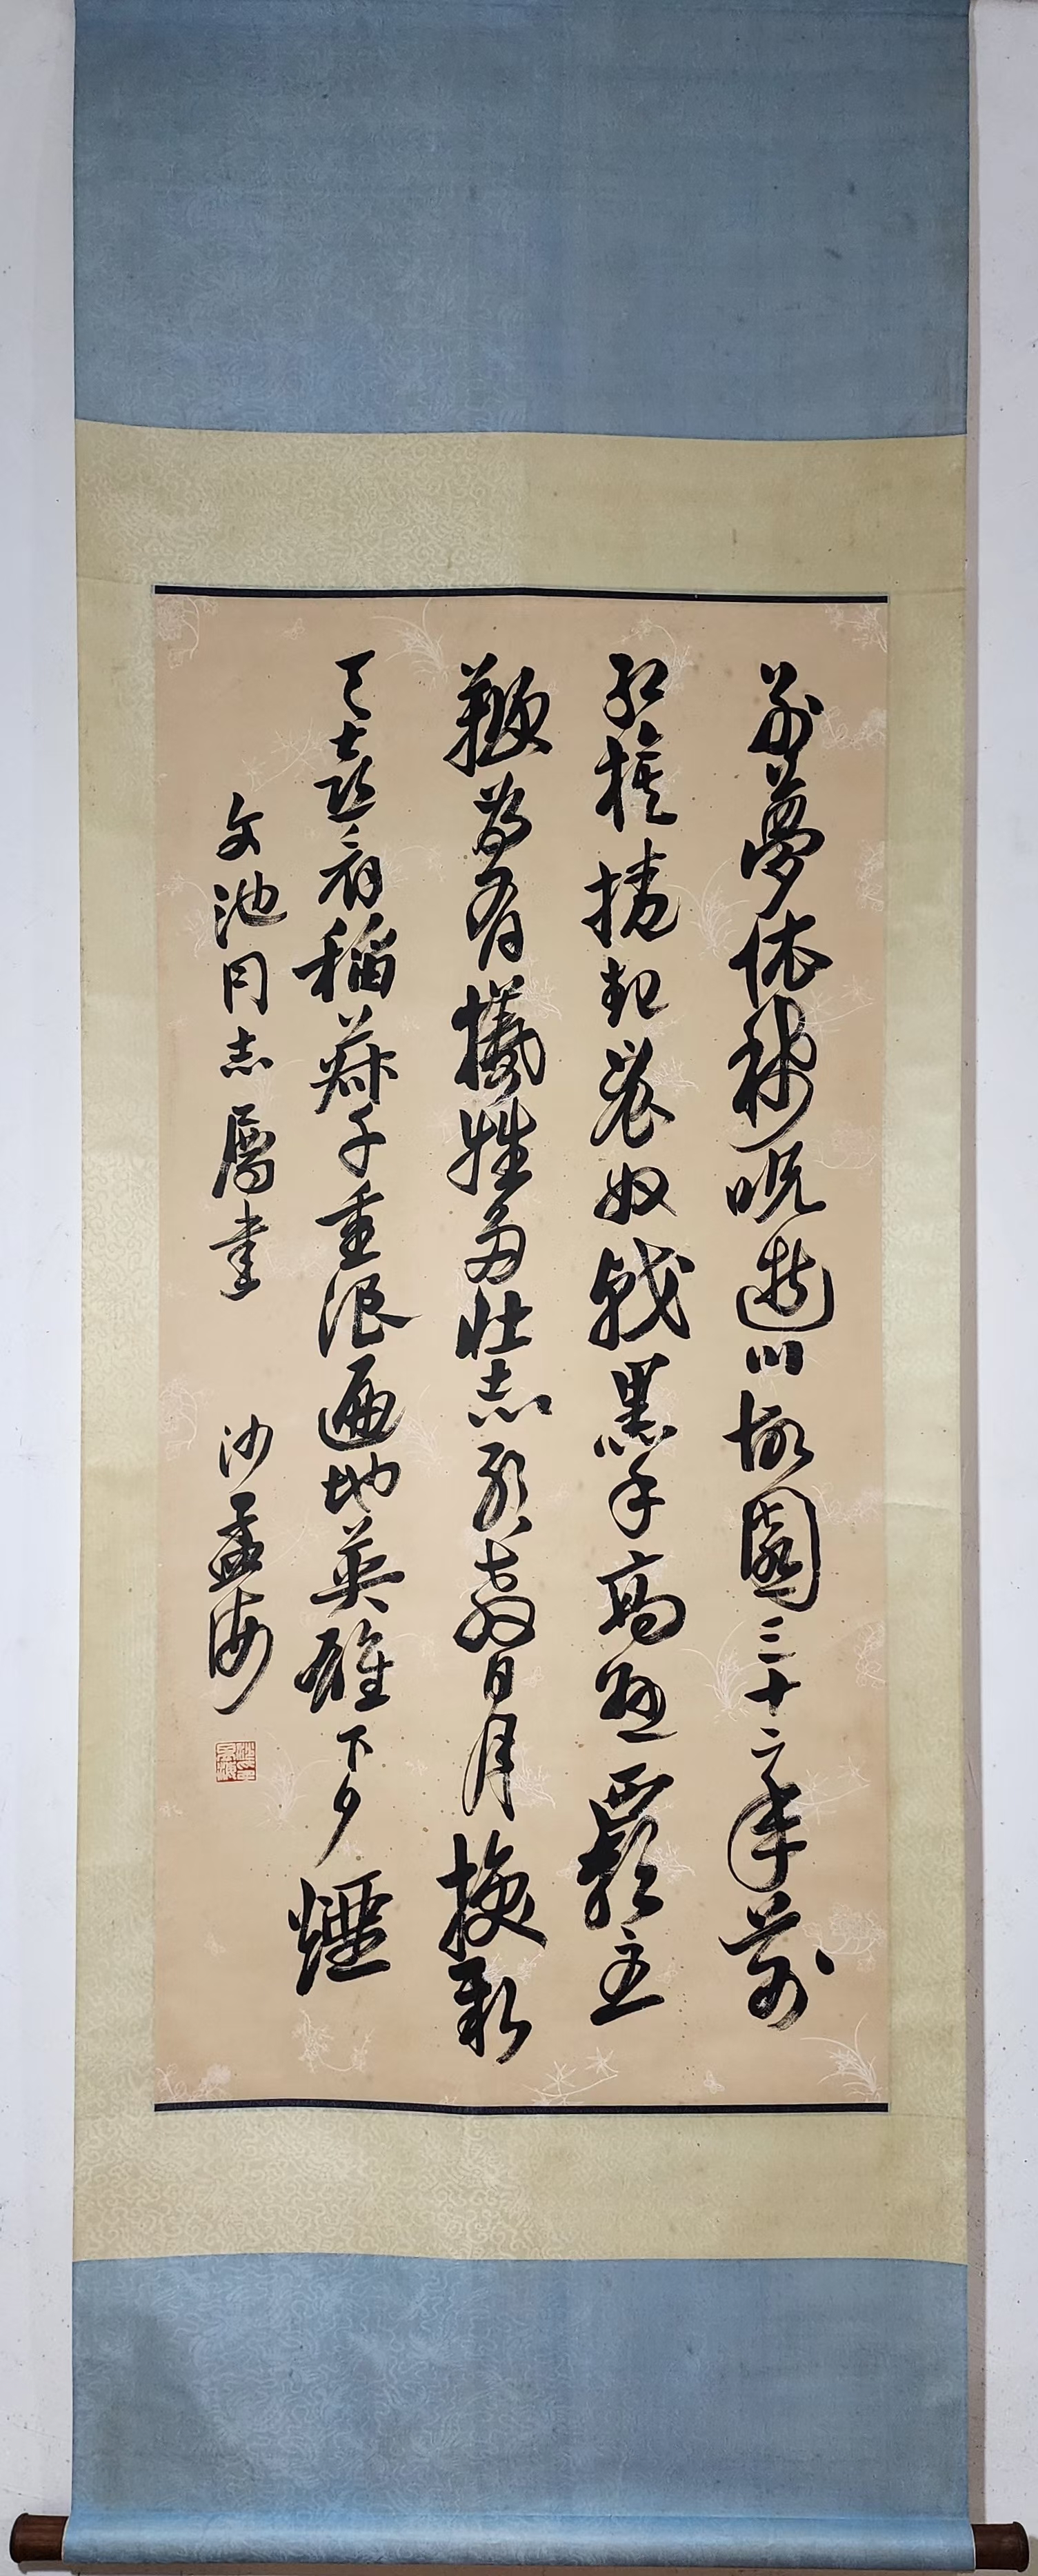 別夢依稀呪逝川故園三十二年前
紅旗捲起農奴戟黑手高懸霸主
鞭為有犧牲多壯志敢教日月換新
天喜看稻菽千重浪遍地英雄下夕煙
文池同志屬書 沙孟海